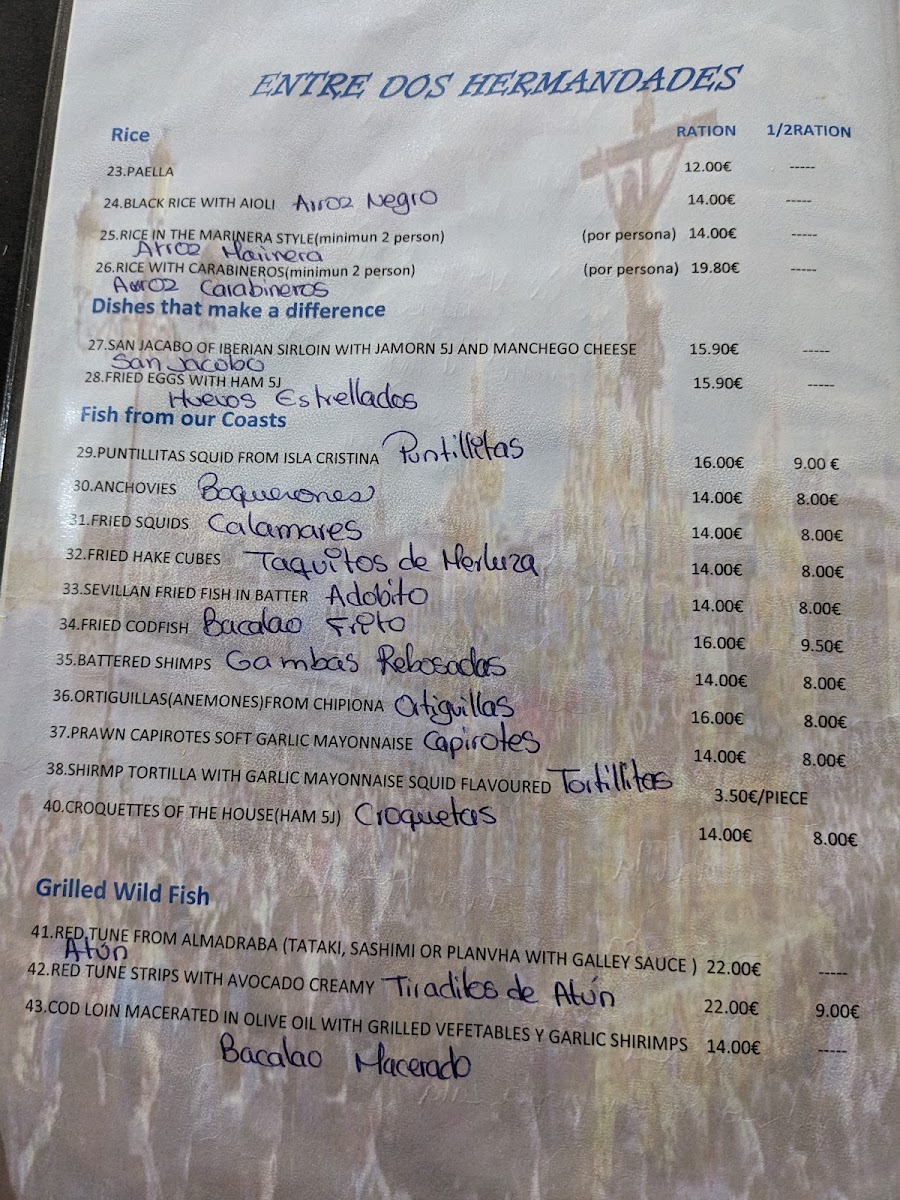 ENTRE DOS HERMANDADES
Rice RATION 1/2RATION
23.PAELLA 12.00€ -----
24.BLACK RICE WITH AIOLI Arroz Negro 14.00€ -----
25.RICE IN THE MARINERA STYLE(minimun 2 person) (por persona) 14.00€ -----
Arroz Marinera
26.RICE WITH CARABINEROS(minimun 2 person) (por persona) 19.80€ -----
Arroz Carabineros
Dishes that make a difference
27.SAN JACABO OF IBERIAN SIRLOIN WITH JAMORN 5J AND MANCHEGO CHEESE 15.90€ -----
San Jacobo
28.FRIED EGGS WITH HAM 5J 15.90€ -----
Huevos Estrellados
Fish from our Coasts
29.PUNTILLITAS SQUID FROM ISLA CRISTINA Puntillitas 16.00€ 9.00 €
30.ANCHOVIES Boquerones 14.00€ 8.00€
31.FRIED SQUIDS Calamares 14.00€ 8.00€
32.FRIED HAKE CUBES Taquitos de Merluza 14.00€ 8.00€
33.SEVILLAN FRIED FISH IN BATTER Adobito 14.00€ 8.00€
34.FRIED CODFISH Bacalao Frito 16.00€ 9.50€
35.BATTERED SHIMPS Gambas Rebosadas 14.00€ 8.00€
36.ORTIGUILLAS(ANEMONES)FROM CHIPIONA Ortiguillas 16.00€ 8.00€
37.PRAWN CAPIROTES SOFT GARLIC MAYONNAISE Capirotes 14.00€ 8.00€
38.SHIRMP TORTILLA WITH GARLIC MAYONNAISE SQUID FLAVOURED Tortillitas 3.50€/PIECE
40.CROQUETTES OF THE HOUSE(HAM 5J) Croquetas 14.00€ 8.00€
Grilled Wild Fish
41.RED TUNE FROM ALMADRABA (TATAKI, SASHIMI OR PLANVHA WITH GALLEY SAUCE ) 22.00€ -----
Atún
42.RED TUNE STRIPS WITH AVOCADO CREAMY Tiraditos de Atún 22.00€ 9.00€
43.COD LOIN MACERATED IN OLIVE OIL WITH GRILLED VEFETABLES Y GARLIC SHIRIMPS 14.00€ -----
Bacalao Macerado